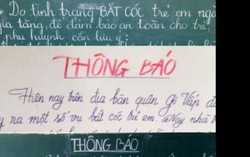 Do tình trạng BẮT CÓC trẻ em ngà
gia tăng, để đảm bảo an toàn cho trẻ,
phụ huynh cần lưu ý:
THÔNG BÁO
Hiện nay trên địa bàn quận Gò Vấp đ
y ra một số vụ bắt cóc trẻ em. Vậy nhà
THÔNG BÁO